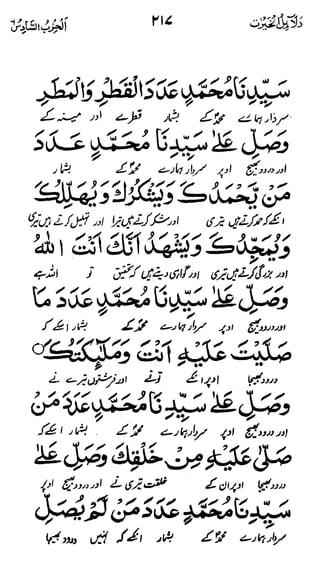 دَلَآئِلُ الْخَيْرٰت ٢١٧ اَلْحِزْبُ السَّادِسُ
سَيِّدِنَا مُحَمَّدٍ عَدَدَ الْقَطْرِ وَالْمَطَرِ
سردار ہمارے محمدؐ کے بشمار قطرے اور مینہ کے
وَصَلِّ عَلٰى سَيِّدِنَا مُحَمَّدٍ عَدَدَ
اور درود بھیج اوپر سردار ہمارے محمدؐ کے بشمار
مَنْ يَّحْمَدُكَ وَيَشْكُرُكَ وَيُهَلِّلُكَ
انکے کہ حمد کرتے ہیں تیری اور شکر کرتے ہیں تیرا اور تہلیل کرتے ہیں تیری
وَيُمَجِّدُكَ وَيَشْهَدُ اَنَّكَ اَنْتَ اللّٰهُ
اور بزرگی کرتے ہیں تیری اور گواہی دیتے ہیں کہ تحقیق تو اللہ ہے
وَصَلِّ عَلٰى سَيِّدِنَا مُحَمَّدٍ عَدَدَ مَا
اور درود بھیج اوپر سردار ہمارے محمدؐ کے بشمار اسکے کہ
صَلَّيْتَ عَلَيْهِ اَنْتَ وَمَلٰٓئِكَتُكَ ○
درود بھیجا اوپر انکے تونے اور فرشتوں تیرے نے
وَصَلِّ عَلٰى سَيِّدِنَا مُحَمَّدٍ عَدَدَ مَنْ
اور درود بھیج اوپر سردار ہمارے محمدؐ کے بشمار اسکے کہ
صَلّٰى عَلَيْهِ مِنْ خَلْقِكَ وَصَلِّ عَلٰى
درود بھیجا اوپر ان کے خلقت تیری نے اور درود بھیج اوپر
سَيِّدِنَا مُحَمَّدٍ عَدَدَ مَنْ لَّمْ يُصَلِّ
سردار ہمارے محمدؐ کے بشمار انکے کہ نہیں درود بھیجا